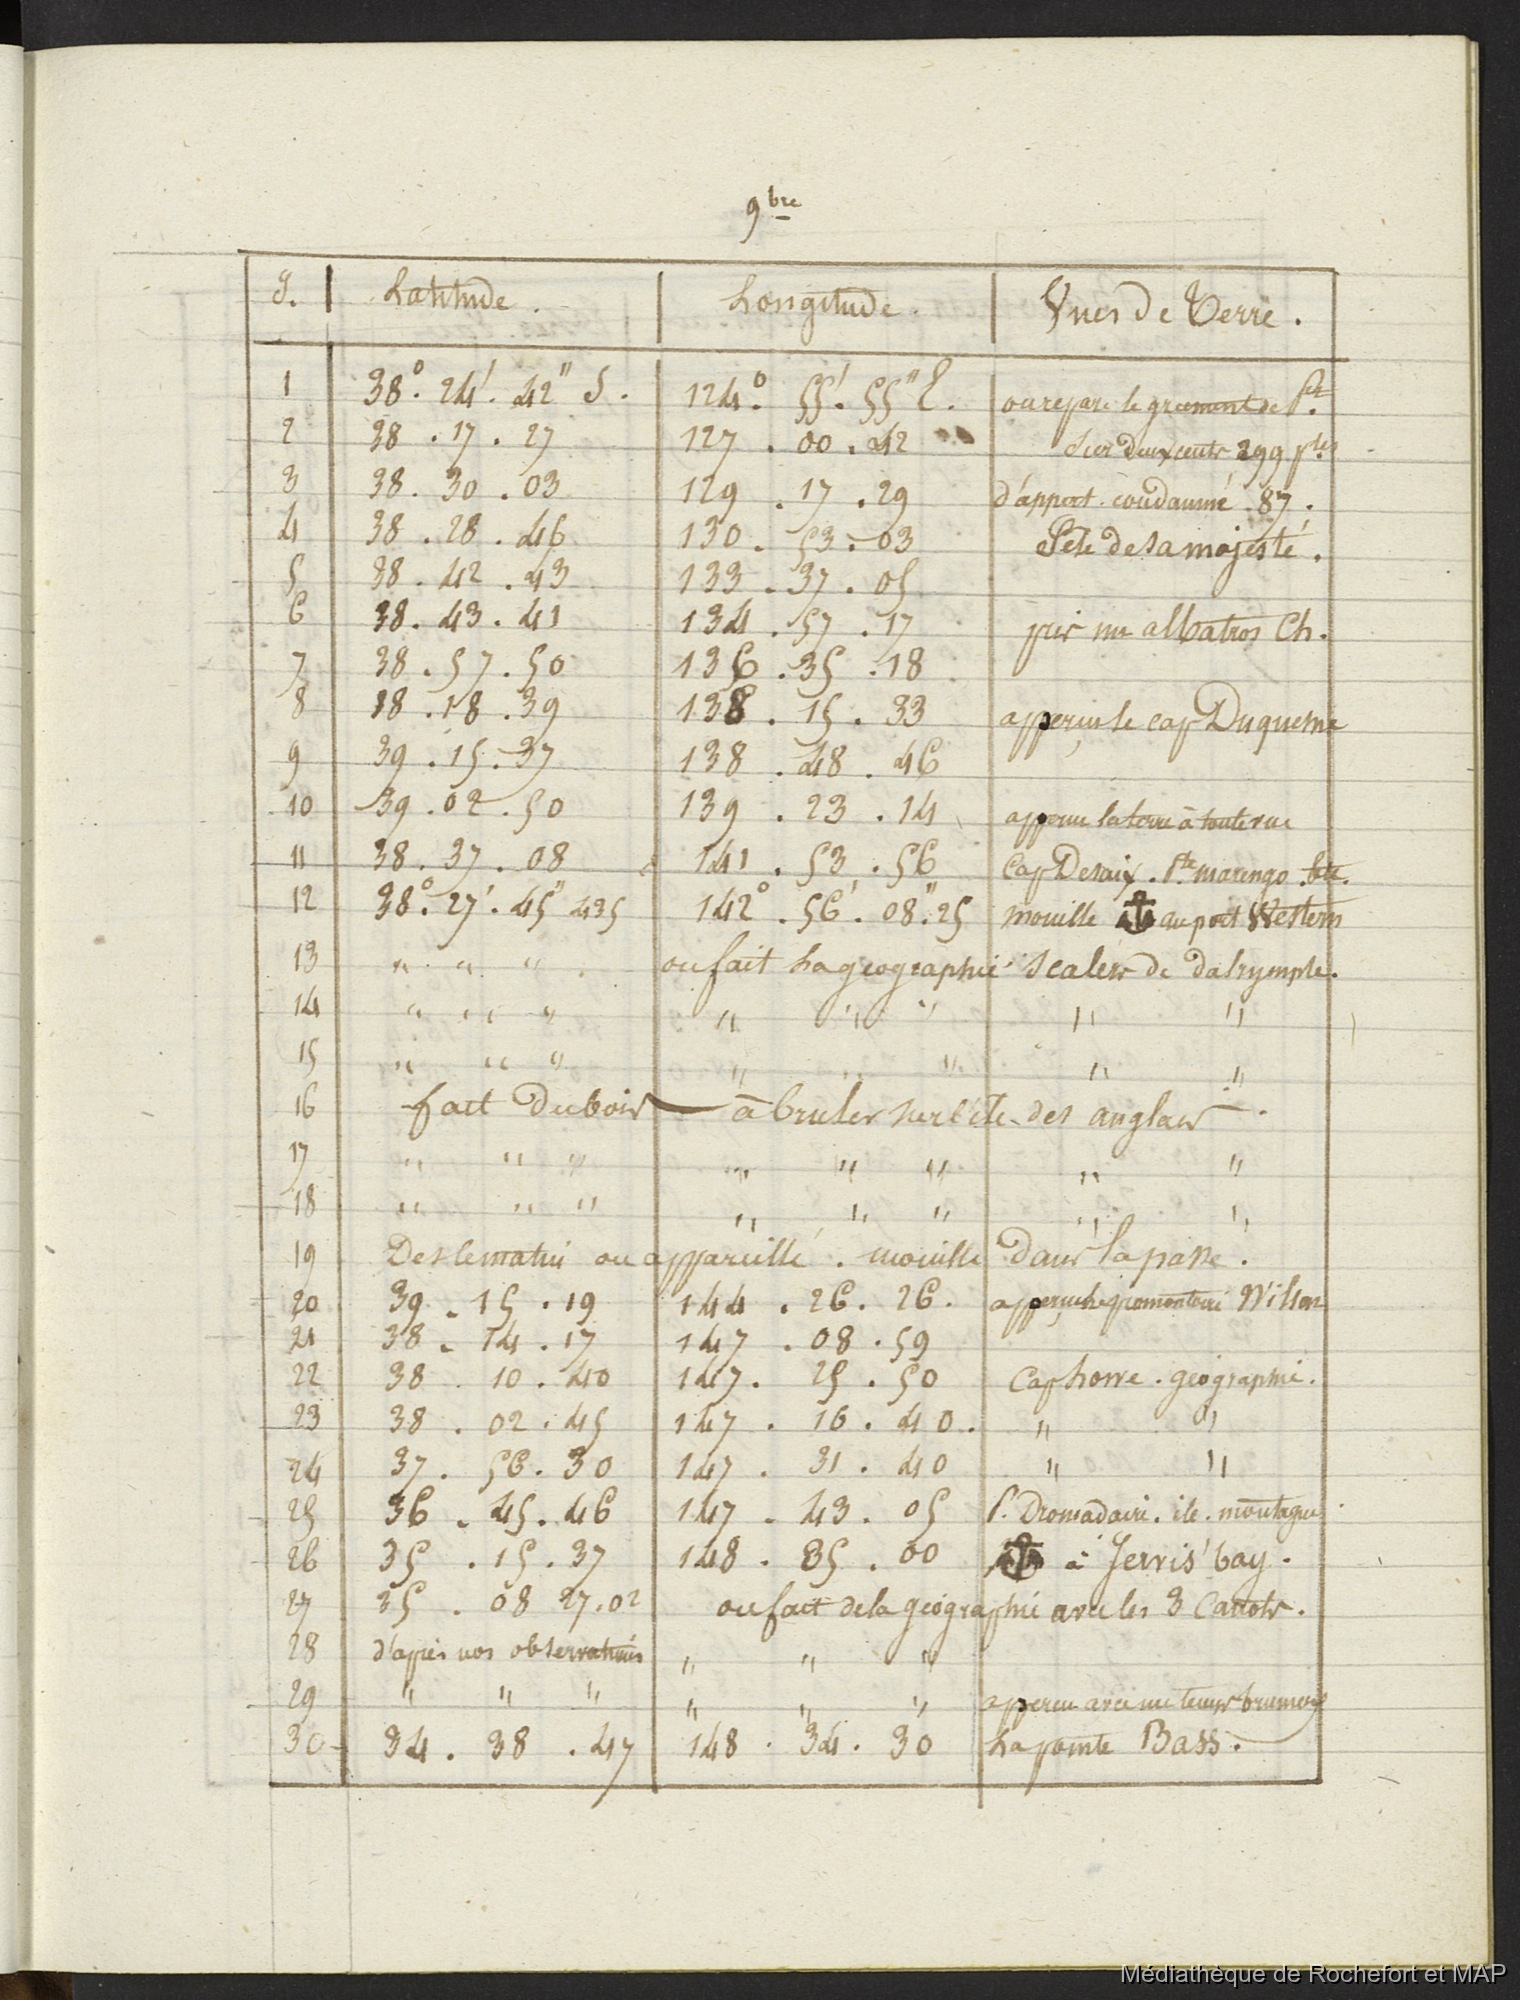 9bre
J. Latitude. Longitude. Vues de Terre.
1 38°. 24'. 42" S. 124°. 55'. 55" E. on repare le greement de Pt.
2 38. 17. 27 127. 00. 42 sur deux cents 299 ples
3 38. 30. 03 129. 17. 29 d'apport. condamné 87.
4 38. 28. 46 130. 53. 03 Fete de sa majesté.
5 38. 42. 43 133. 37. 05
6 38. 43. 41 134. 57. 17 pris un albatros Ch.
7 38. 57. 50 136. 35. 18
8 18. 18. 39 138. 15. 33 apperçu le cap Duquesne
9 39. 15. 37 138. 48. 46
10 39. 02. 50 139. 23. 14 apperçu la terre à toute vue
11 38. 37. 08 141. 53. 56 Cap Desaix. Pte marengo. &tc.
12 38°. 27'. 45" 435 142°. 56'. 08". 25 mouillé au port Western
13 " " " on fait La geographie scalers de dalrymple.
14 " " " " " " " "
15 " " " " " " " "
16 fait Du bois à bruler sur l'ile des anglais.
17 " " " " " " " "
18 " " " " " " " "
19 Des le matin on appareillé. mouillé Dans la passe.
20 39. 15. 19 144. 26. 26. apperçu le promontoire Wilson
21 38. 14. 17 147. 08. 59
22 38. 10. 40 147. 25. 50 Cap howe. géographie.
23 38. 02. 45 147. 16. 40. " "
24 37. 56. 30 147. 31. 40 " "
25 36. 45. 46 147. 43. 05 P. Dromadaire. ile. montague
26 35. 15. 37 148. 35. 00 à Jerris' bay.
27 35. 08 27. 02 on fait de la géographie avec les 3 Canots.
28 d'après nos observations " " "
29 " " " " " " apperçu avec un tems brumeux
30 34. 38. 47 148. 34. 30 La pointe Bass.
Médiathèque de Rochefort et MAP